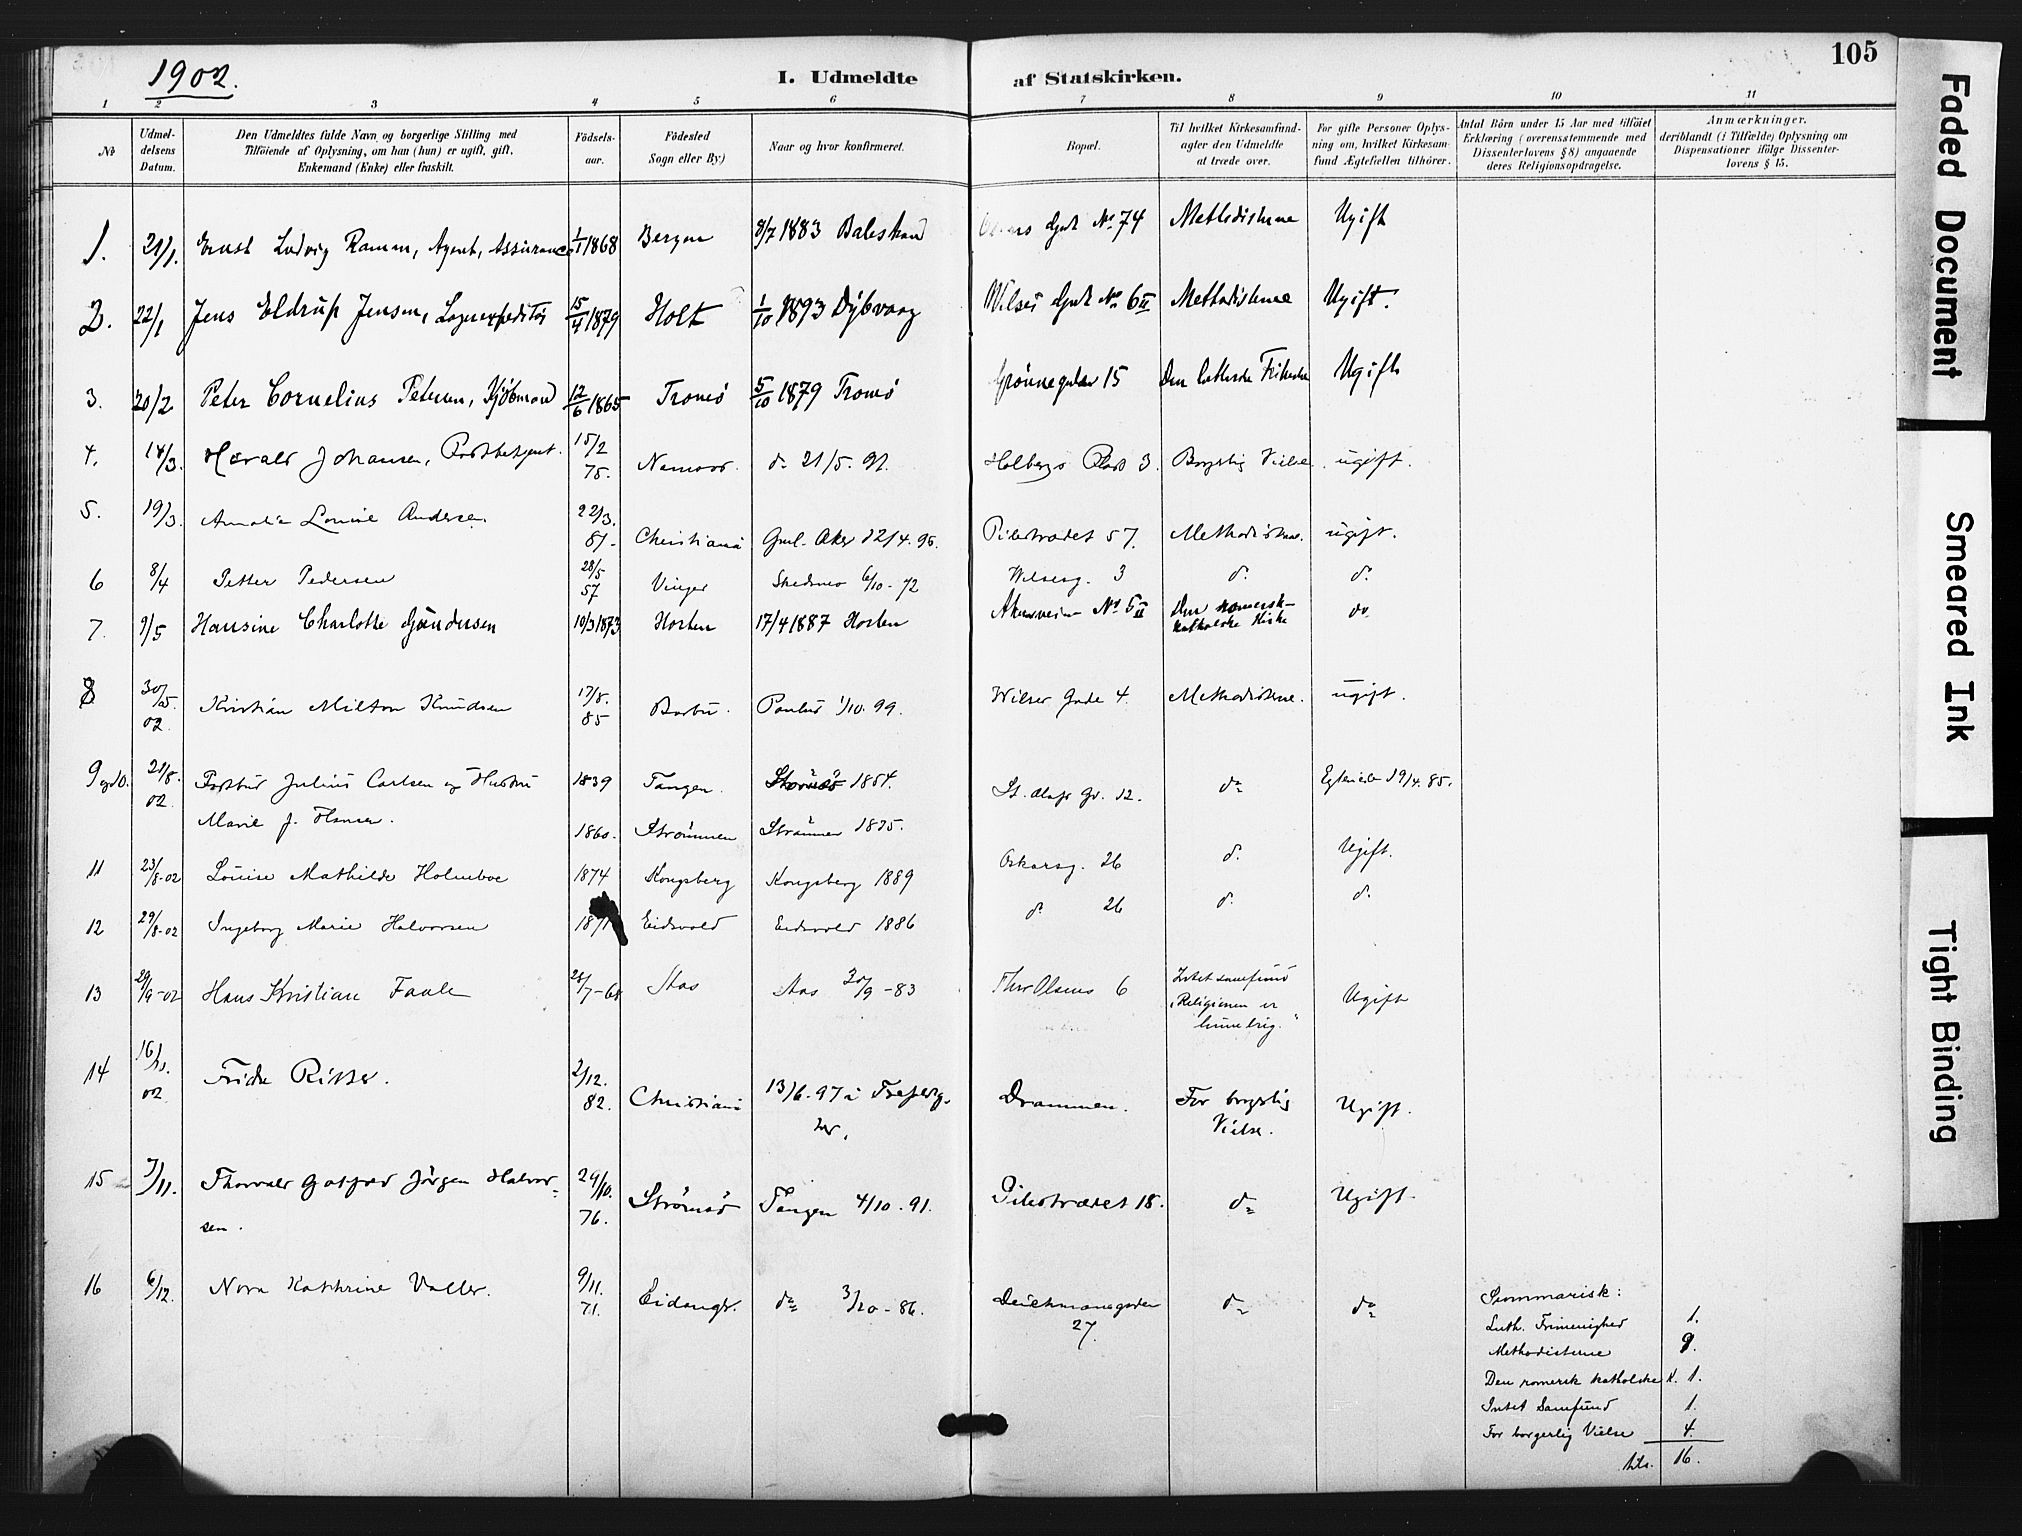 105
1902.
I. Udmeldte af Statskirken.
1 2 3 4 5 6 7 8 9 10 11
No
Udmeldelsens Datum.
Den Udmeldtes fulde Navn og borgerlige Stilling med
Tilføiende af Oplysning, om han (hun) er ugift, gift,
Enkemand (Enke) eller fraskilt.
Fødselsaar.
Fødested
Sogn eller By)
Naar og hvor konfirmeret.
Bopæl.
Til hvilket Kirkesamfund-
agter den Udmeldte
at træde over.
For gifte Personer Oplys-
ning om, hvilket Kirkesam-
fund Ægtefællen tilhører.
Antal Børn under 15 Aar med tilføiet
Erklæring (overensstemmende med
Dissenterlovens § 8) angaaende
deres Religionsopdragelse.
Anmærkninger.
deriblandt (i Tilfælde) Oplysning om
Dispensationer ifølge Dissenter-
lovens § 15.
1. 21/1. Ernst Ludvig Ramm, Agent, Assurance 1/1 1868 Bergen 8/7 1883 Balestrand Gade No 74 Methodisterne Ugift
2. 22/1 Jens Eldrup Jensen, Lagerexpeditør 15/4 1879 Holt 1/10 1893 Dybvaag Wilses Gade No 6 II Methodisterne Ugift.
3. 20/2 Peter Cornelius Petersen, Kjøbmand 12/6 1865 Tromsø 5/10 1879 Tromsø Grønnegaden 15 Den lutherske Frikirke Ugift
4. 14/3. Harald Johansen, Postbetjent. 15/2 75. Namsos. do 21/5. 91. Holbergs Plads 3. Borgerlig Vielse. ugift.
5. 19/3. Amalie Louise Andersen. 22/3. 81. Christiania Gml. Aker 12/4. 96. Pilestrædet 57. Methodisterne. ugift.
6 8/4 Petter Pedersen 28/5 57 Vinger Skedsmo 6/10 - 72 Wilsesg. 3 do. do.
7. 9/5 Hansine Charlotte Gundersen 10/3 1873 Horten 17/4 1887 Horten Akersveien No 5 II Den romersk-
katholske Kirke do
8 30/5. 02. Kristian Milton Knudsen 17/8. 85 Barbu. Paulus 1/10. 99. Wilses Gade 4. Methodisterne. ugift.
9 og 10. 21/8. 02. Postbud Julius Carlsen og Hustru 1839 Tangen. Strømsø 1854. St. Olafs Gd. 12. do Egteviede 19/4. 85.
Marie J. Hansen. 1860. Strømmen Strømmen 1875.
11 23/8-02 Louise Mathilde Holmboe 1874 Kongsberg Kongsberg 1889 Oskarsg. 26 do. Ugift.
12 29/8-02 Ingeborg Marie Halvorsen 1871 Eidsvold Eidsvold 1886 do 26 do. do.
13 29/9-02 Hans Kristian Faale 28/7-68 Aas Aas 30/9 - 83 Thv Olsens 6 Intet samfund
"Religionen er
humbug." Ugift
14 16/11. 02 Frida Ritter. 2/12. 82. Christiania 13/6. 97 i Trefoldig.
Drammen. For borgerlig
Vielse. Ugift.
15 7/11. Thorvald Gotfred Jørgen Halvor-
sen. 29/10. 76. Strømsø Tangen 4/10. 91. Pilestrædet 18. do Ugift.
16 6/12. Nora Kathrine Valler. 9/11. 71. Eidanger. do 3/10 - 86. Deichmansgaden
27. do do
Summarisk:
Luth. Frimenighed 1.
Methodisterne 9.
Den romersk katholske K. 1.
Intet Samfund 1.
For borgerlig Vielse 4.
tils. 16.
Faded Document
Smeared Ink
Tight Binding